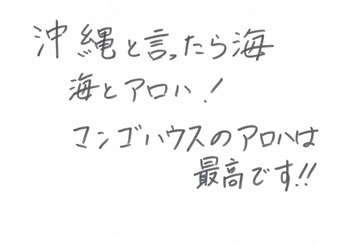 沖縄と言ったら海
海とアロハ!
マンゴハウスのアロハは
最高です!!